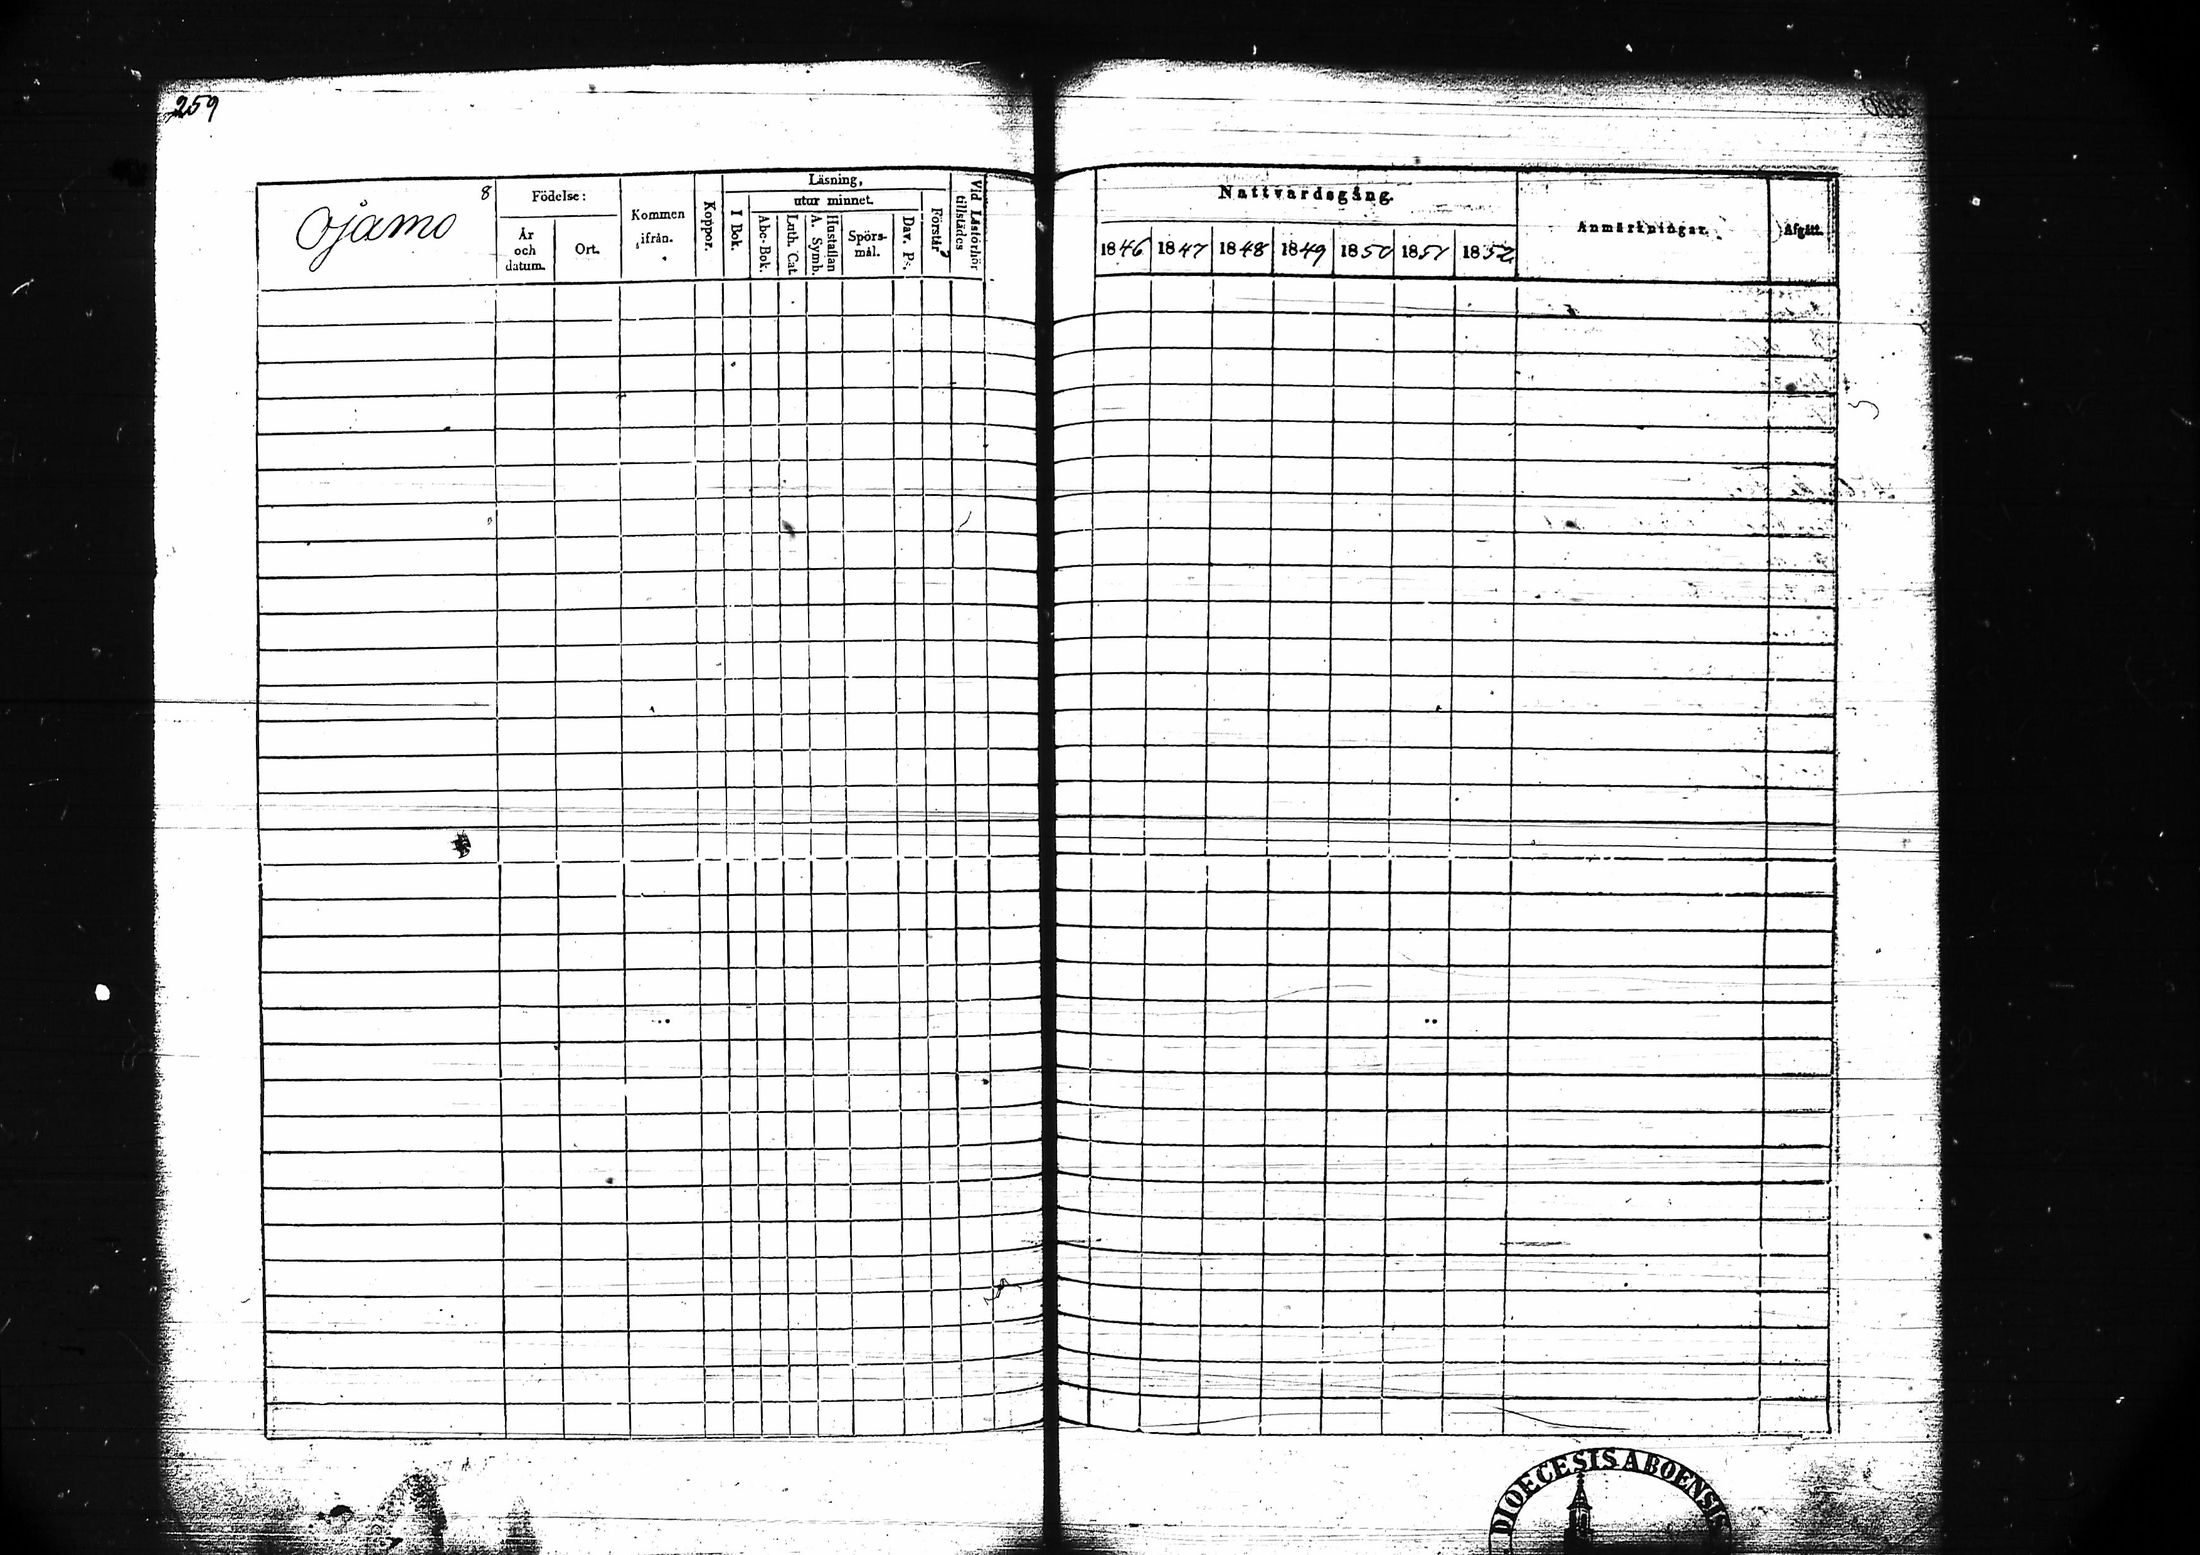 259
Ojamo 8
Födelse:
År
och
datum.
Ort.
Kommen
ifrån.
Koppor.
Läsning,
utur minnet.
I Bok.
Abc-Bok.
Luth. Cat.
Hustaflan
A. Symb.
Spörs-
mål.
Dav. Ps.
Förstår
Vid Läsförhör
tillstädes
Nattvardsgång.
1846 1847 1848 1849 1850 1851 1852
Anmärkningar.
Afgått.
DIOECESIS ABOENSIS